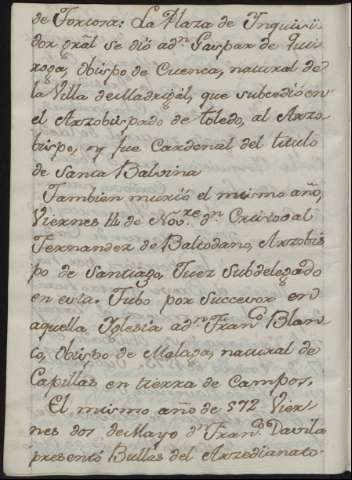 de Torcosa: La Plaza de Inquisi-
dor gràl se dió a dn Gaspar de Qui-
roga, Obispo de Cuenca, natural de
la Villa de Madrigàl, que subcedió en
el Arzobispado de Toledo, al Arzo-
bispo, y fue Cardenal del titulo
de Santa Balvina
Tambien murió el mismo año,
Viernes 14 de Novre dn Cristoval
Fernandez de Baltodano, Arzobis-
po de Santiago, Juez subdelegado
en esta. Tubo por Successor en
aquella Iglesia a dn Franco Blan-
co, Obispo de Malaga, natural de
Capillas en tierra de Campos,
El mismo año de 572 Vier-
nes dos de Mayo dn Franco Davila
presentó Bullas del Arzedianato-